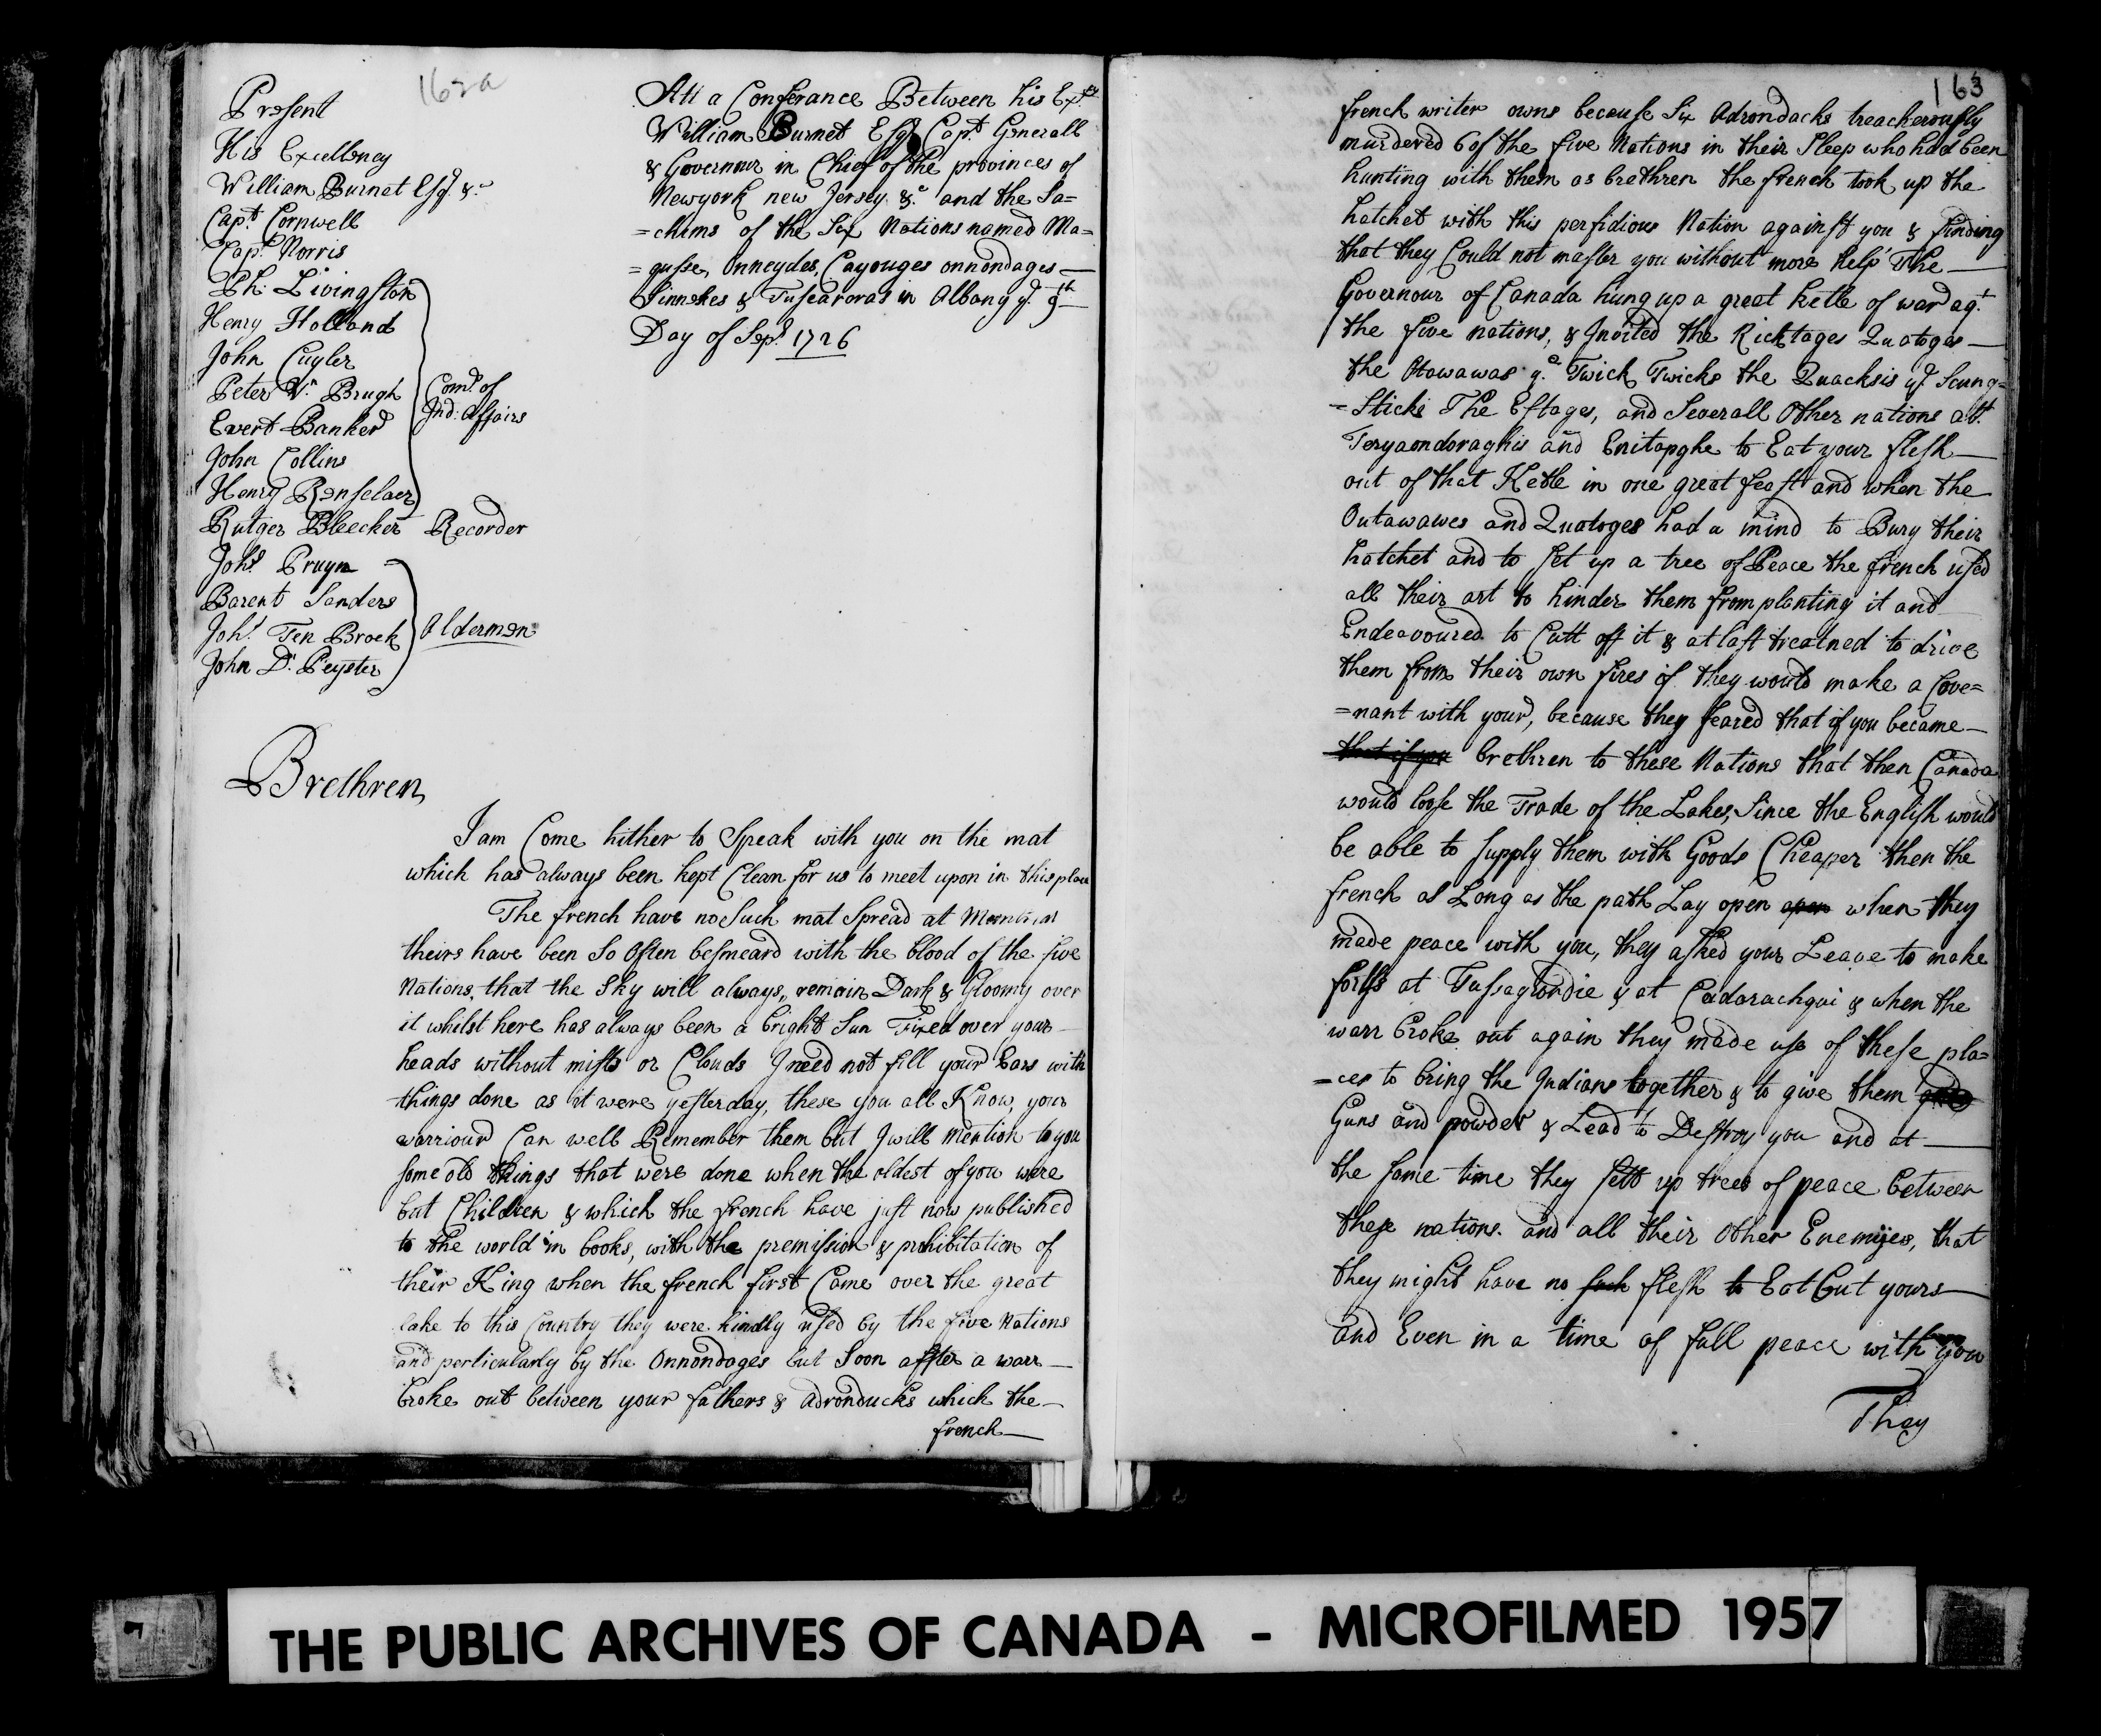 162a
Present
His Excellency
William Burnet Esq.r &c
Capt Cornwell
Capt Norris
Ph: Livingston
Henry Holland
John Cuyler
Peter Vn Brugh
Evert Banker
John Collins
Henry Renselaer
Com.s of
Ind: Affairs
Rutger Bleecker Recorder
Johs Pruyn
Barent Sanders
Johs Ten Broek
John D: Peyster
Aldermen
Att a Conferance Between his Excy
William Burnet Esqr Capt Generall
& Governour in Chief of the provinces of
Newyork new Jersey &c and the Sa=
=chims of the Six Nations named Ma=
=qusse, Onneydes, Cayouges onnondages
Sinnekes & Tuscaroras in Albany ye 9th
Day of Sepr 1726
Brethren
I am Come hither to Speak with you on the mat
which has always been kept Clean for us to meet upon in this place
The french have no Such mat Spread at
theirs have been So Often besmeard with the blood of the five
Nations, that the Sky will always,, remain Dark & Gloomy over
it whilst here has always been a bright Sun Fixed over your
heads without mists or Clouds I need not fill your Ears with
things done as it were yesterday, these you all Know, your
warriours Can well Remember them but I will mention to you
some old things that were done when the oldest of you were
but Children & which the french have just now published
to the world in books, with the premission & prohibitation of
their King when the french first Came over the great
lake to this Country they were kindly used by the five Nations
and perticularly by the Onnondages but Soon affter a warr
broke out between your fathers & Adronducks which the
french
163
french writer owns because Six Adrondacks treacherously
murdered 6 of the five Nations in their Sleep who had been
hunting with them as brethren the french took up the
hatchet with this perfidious Nation against you & finding
that they Could not master you without more help The
Governour of Canada hung up a great ketle of war agt
the five nations, & Invited the Ricktages Quatoges
the Otowawas ye Twick Twicks the Quacksis ye Scung=
=Sticks The Estages, and Severall Other nations att
Teryaondoraghis and Enitapghe to Eat your flesh
out of that Ketle in one great feast and when the
Outawawes and Quatoges had a mind to Bury their
hatchet and to set up a tree of Peace the french used
all their art to hinder them from planting it and
Endeavoured to Cutt off it & at last treatned to drive
them from their own fires if they would make a Cove=
=nant with your, because they feared that if you became
that if you brethren to these Nations that then Canada
would loose the Trade of the Lakes, Since the English would
be able to supply them with Goods Cheaper then the
french as Long as the path Lay open open when they
made peace with you, they asked your Leave to make
forts at Tussagrondie & at Cadarachqui & when the
warr broke out again they made use of these pla=
=ces to bring the Indians together & to give them
Guns and powder & Lead to Destroy you and at
the same time they sett up trees of peace between
these nations. and all their Other Enemijes, that
they might have no such flesh to Eat but yours
and Even in a time of full peace with you
They
THE PUBLIC ARCHIVES OF CANADA - MICROFILMED 1957